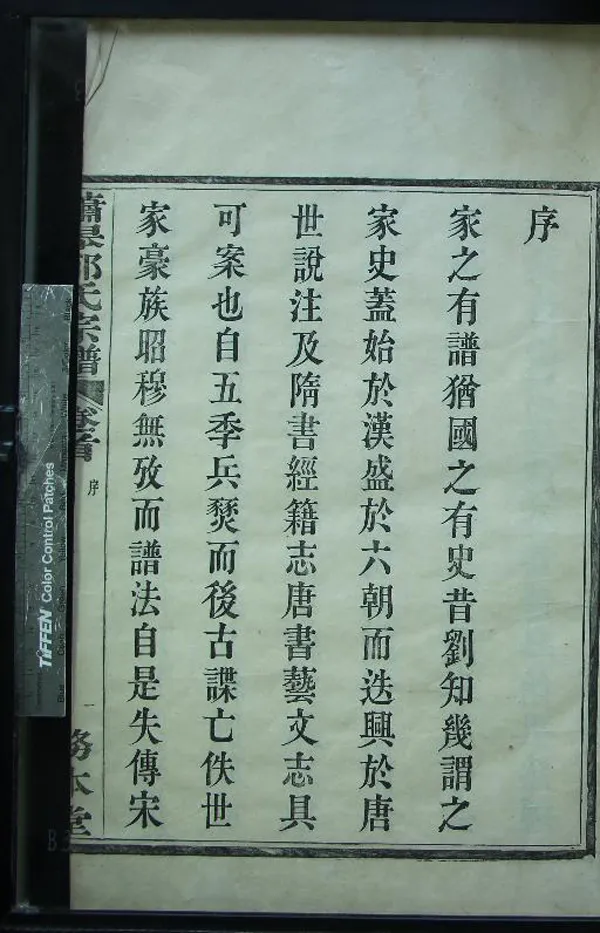 序
家之有譜猶國之有史昔劉知幾謂之
家史蓋始於漢盛於六朝而迭興於唐
世說注及隋書經籍志唐書藝文志具
可案也自五季兵燹而後古諜亡佚世
家豪族昭穆無攷而譜法自是失傳宋
氏宗譜
卷首
序
一
務本堂
TIFFEN Color Control Patches